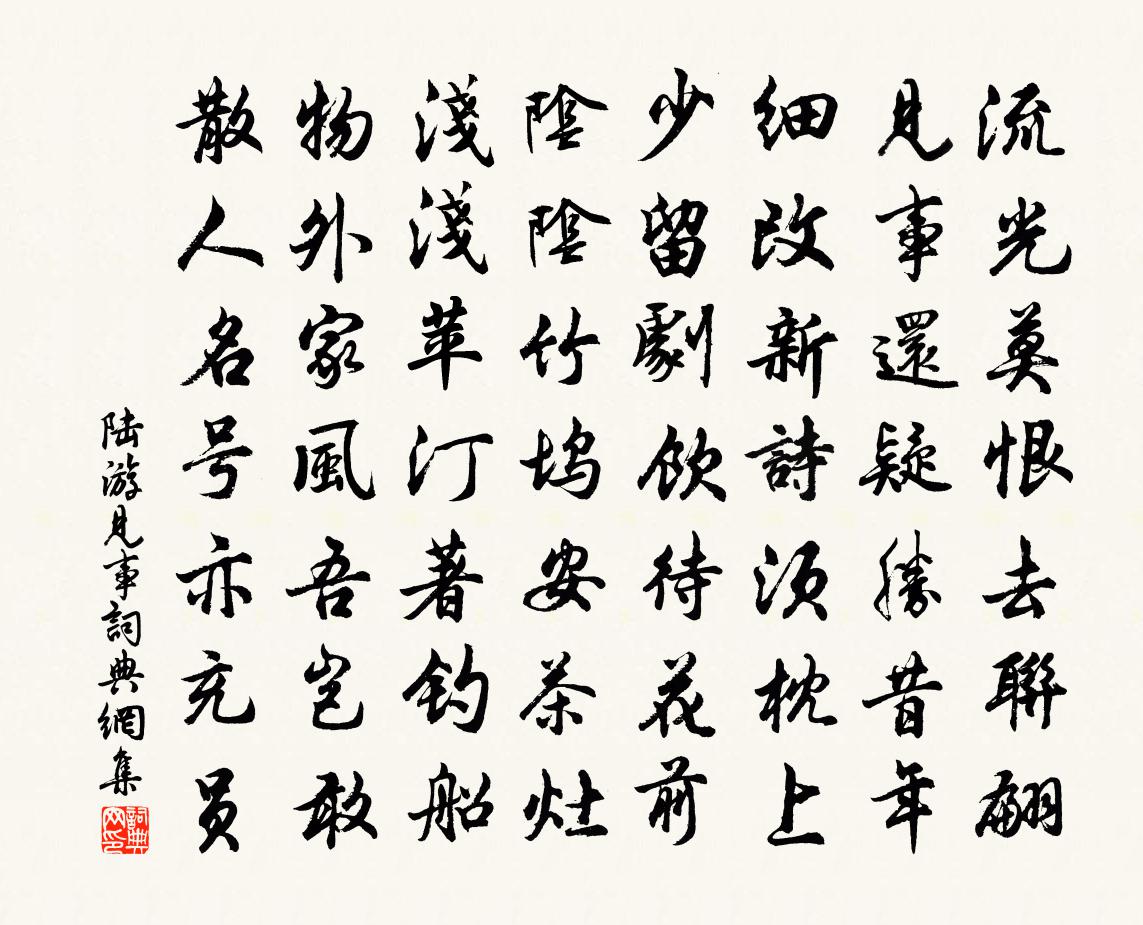 流光莫恨去聯翩
見事還疑勝昔年
細改新詩須枕上
少留劇飲待花前
陰陰竹塢安茶灶
淺淺苹汀著釣船
物外家風吾豈敢
散人名号亦充員
陸游見事詞典網集
詞典网印